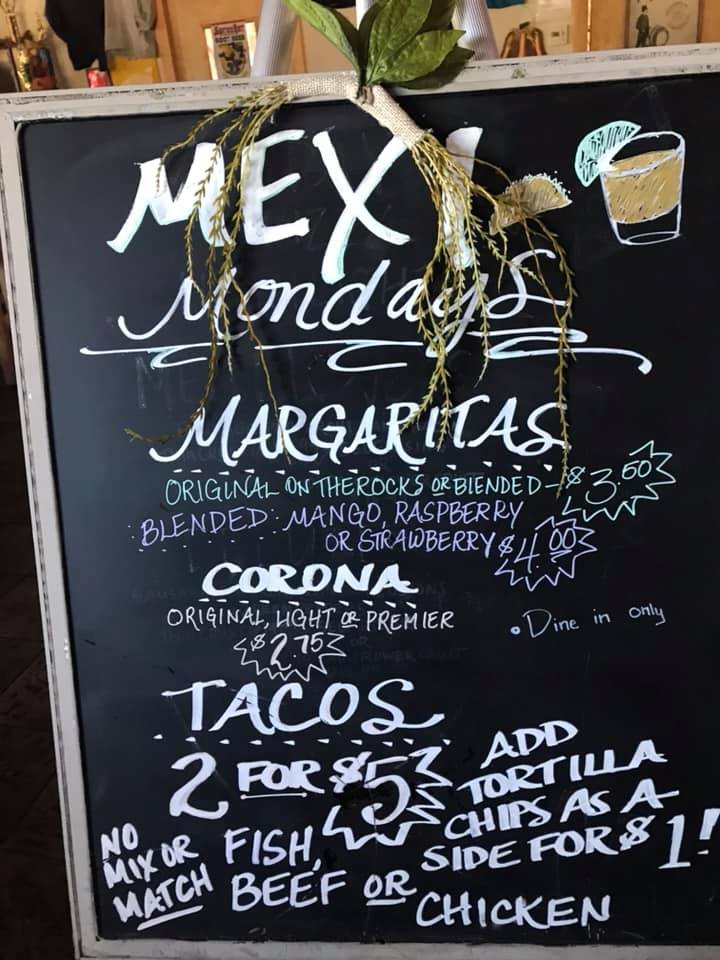 MEXI
Mondays
MARGARITAS
ORIGINAL ON THE ROCKS OR BLENDED - $3.50
BLENDED: MANGO, RASPBERRY
OR STRAWBERRY $4.00
CORONA
ORIGINAL, LIGHT OR PREMIER
$2.75
• Dine in only
TACOS
2 FOR $5
NO
MIX OR
MATCH
FISH,
BEEF OR
CHICKEN
ADD
TORTILLA
CHIPS AS A
SIDE FOR $1!